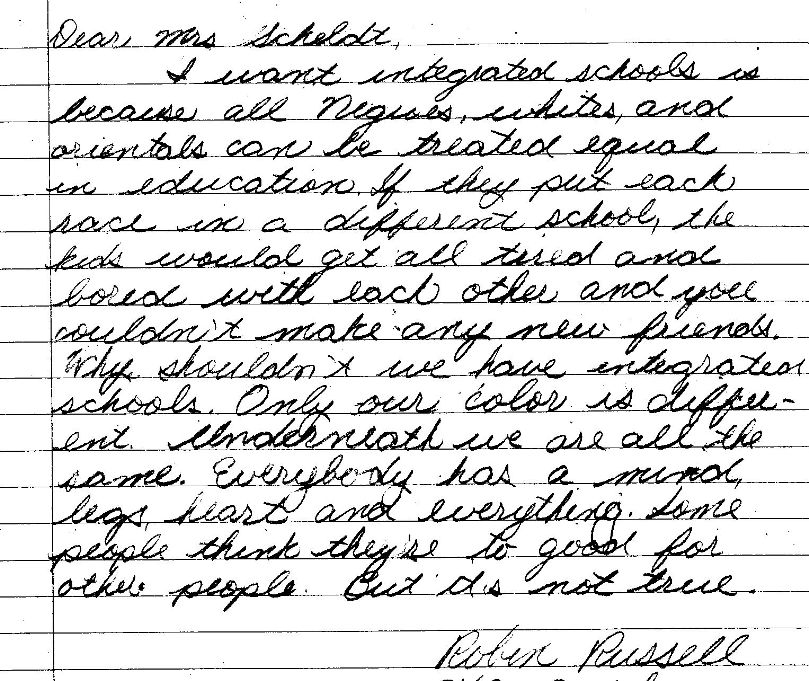 Dear Mrs Scheldt,
I want integrated schools is
because all Negroes, whites, and
orientals can be treated equal
in education. If they put each
race in a different school, the
kids would get all tired and
bored with each other and you
couldn't make any new friends.
Why shouldn't we have integrated
schools. Only our color is differ-
ent. Underneath we are all the
same. Everybody has a mind,
legs, heart and everything. Some
people think they're to good for
other people. But it's not true.
Robin Russell